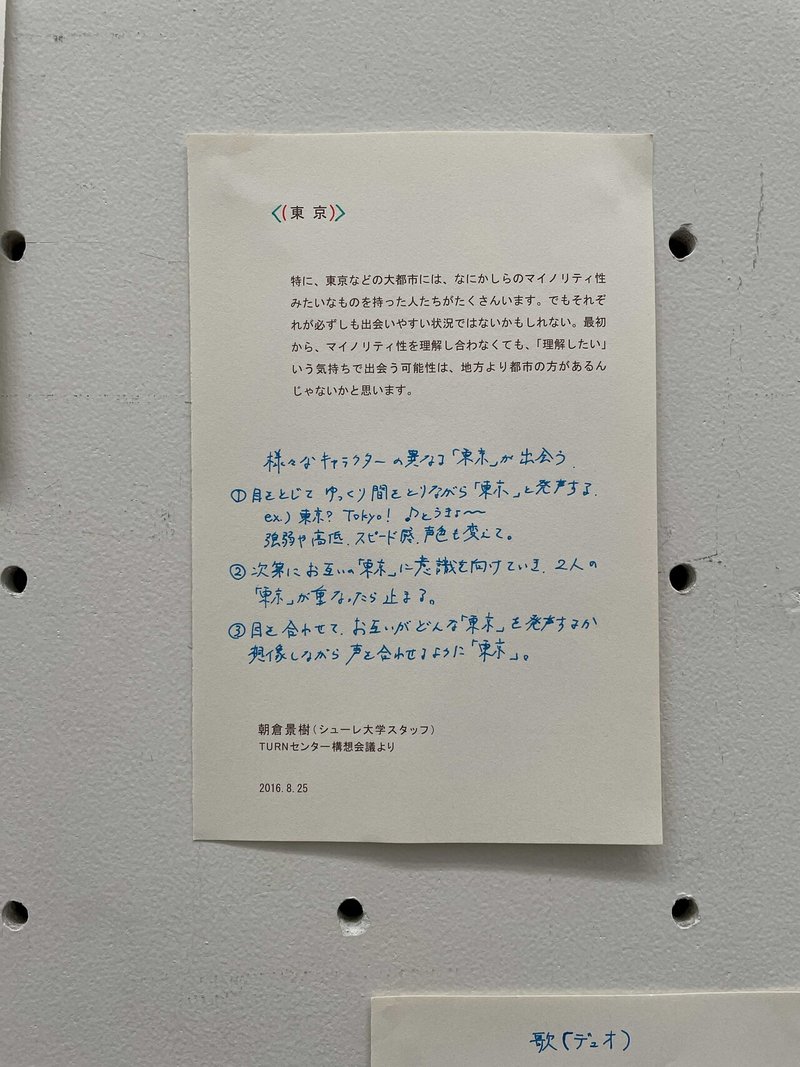 〈(東京)〉
特に、東京などの大都市には、なにかしらのマイノリティ性
みたいなものを持った人たちがたくさんいます。でもそれぞ
れが必ずしも出会いやすい状況ではないかもしれない。最初
から、マイノリティ性を理解し合わなくても、「理解したい」
いう気持ちで出会う可能性は、地方より都市の方があるん
じゃないかと思います。
様々なキャラクターの異なる「東京」が出会う.
①目をとじて ゆっくり間をとりながら「東京」と発声する.
ex.) 東京? Tokyo! ♪とうきょ〜〜
強弱や高低、スピード感、声色も変えて。
②次第にお互いの「東京」に意識を向けていき、2人の
「東京」が重なったら止まる。
③目を合わせて、お互いがどんな「東京」を発声するか
想像しながら 声を合わせるように「東京」。
朝倉景樹(シューレ大学スタッフ)
TURNセンター構想会議より
2016.8.25
歌(デュオ)